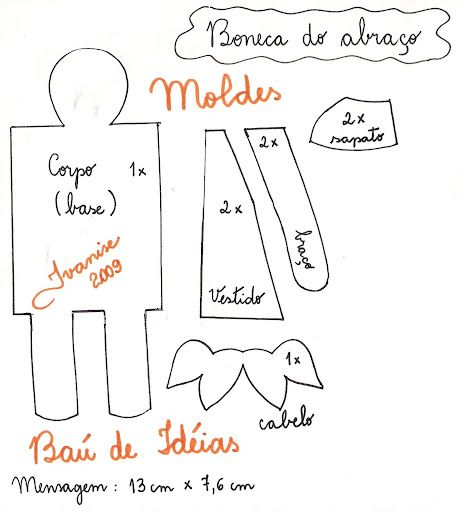 Boneca do abraço
Moldes
2x
sapato
Corpo 1x
(base)
Ivanise
2009
2x
Vestido
2x
braço
1x
cabelo
Baú de Idéias
Mensagem : 13 cm x 7,6 cm